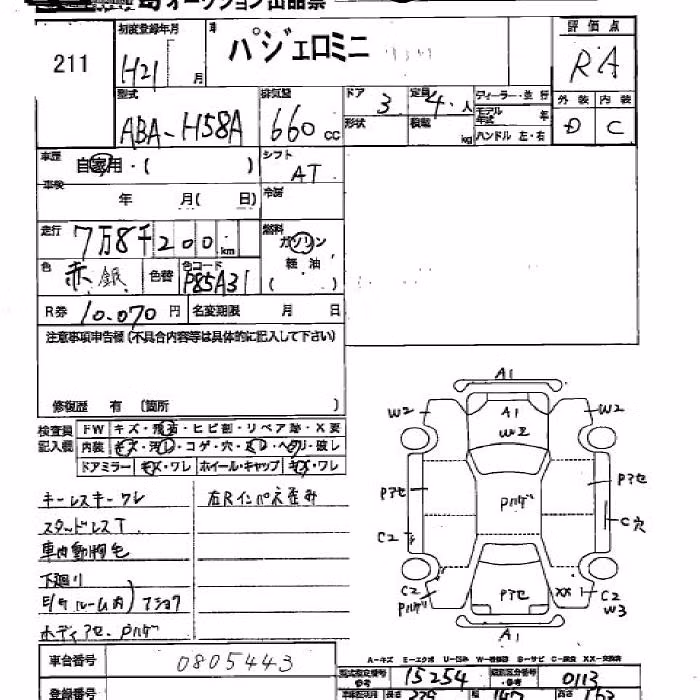 オークション出品票
211
初度登録年月
H21 月
車
パジェロミニ
評価点
RA
型式
ABA-H58A
排気量
660 cc
ドア 3
定員 4 人
形状
積載 kg
ディーラー・並行
モデル年式 年
ハンドル 左・右
外装 内装
D C
車歴
自家用・( )
シフト
AT
車検
年 月( 日)
冷房
走行
7万8千200 km
燃料
ガソリン
軽油
( )
色
赤 銀
色替
色コード
P85A31
R券 10.070 円
名変期限 月 日
注意事項申告欄(不具合内容等は具体的に記入して下さい)
修復歴 有 〔箇所 〕
検査員記入欄
FW キズ・飛石・ヒビ割・リペア跡・X要
内装 キズ・汚レ・コゲ・穴・スレ・ヘタリ・破レ
ドアミラー キズ・ワレ ホイール・キャップ キズ・ワレ
キーレスキーワレ
左Rインパネ歪み
スタッドレスT.
車内動物毛
下廻り
E/gルーム内) フショク
ボディアセ、Pハゲ
A1
W2
A1
W2
W2
Pアセ
Pハゲ
Pアセ
C2
C穴
C2
Pハゲ
Pアセ
XX
C2
W3
A1
A-キズ E-エクボ U-凹み W-補修跡 S-サビ C-腐食 XX-交換済
車台番号 0805443
型式指定番号 15254
類別区分番号 0113
登録番号
長さ 339
幅 147
高さ 163